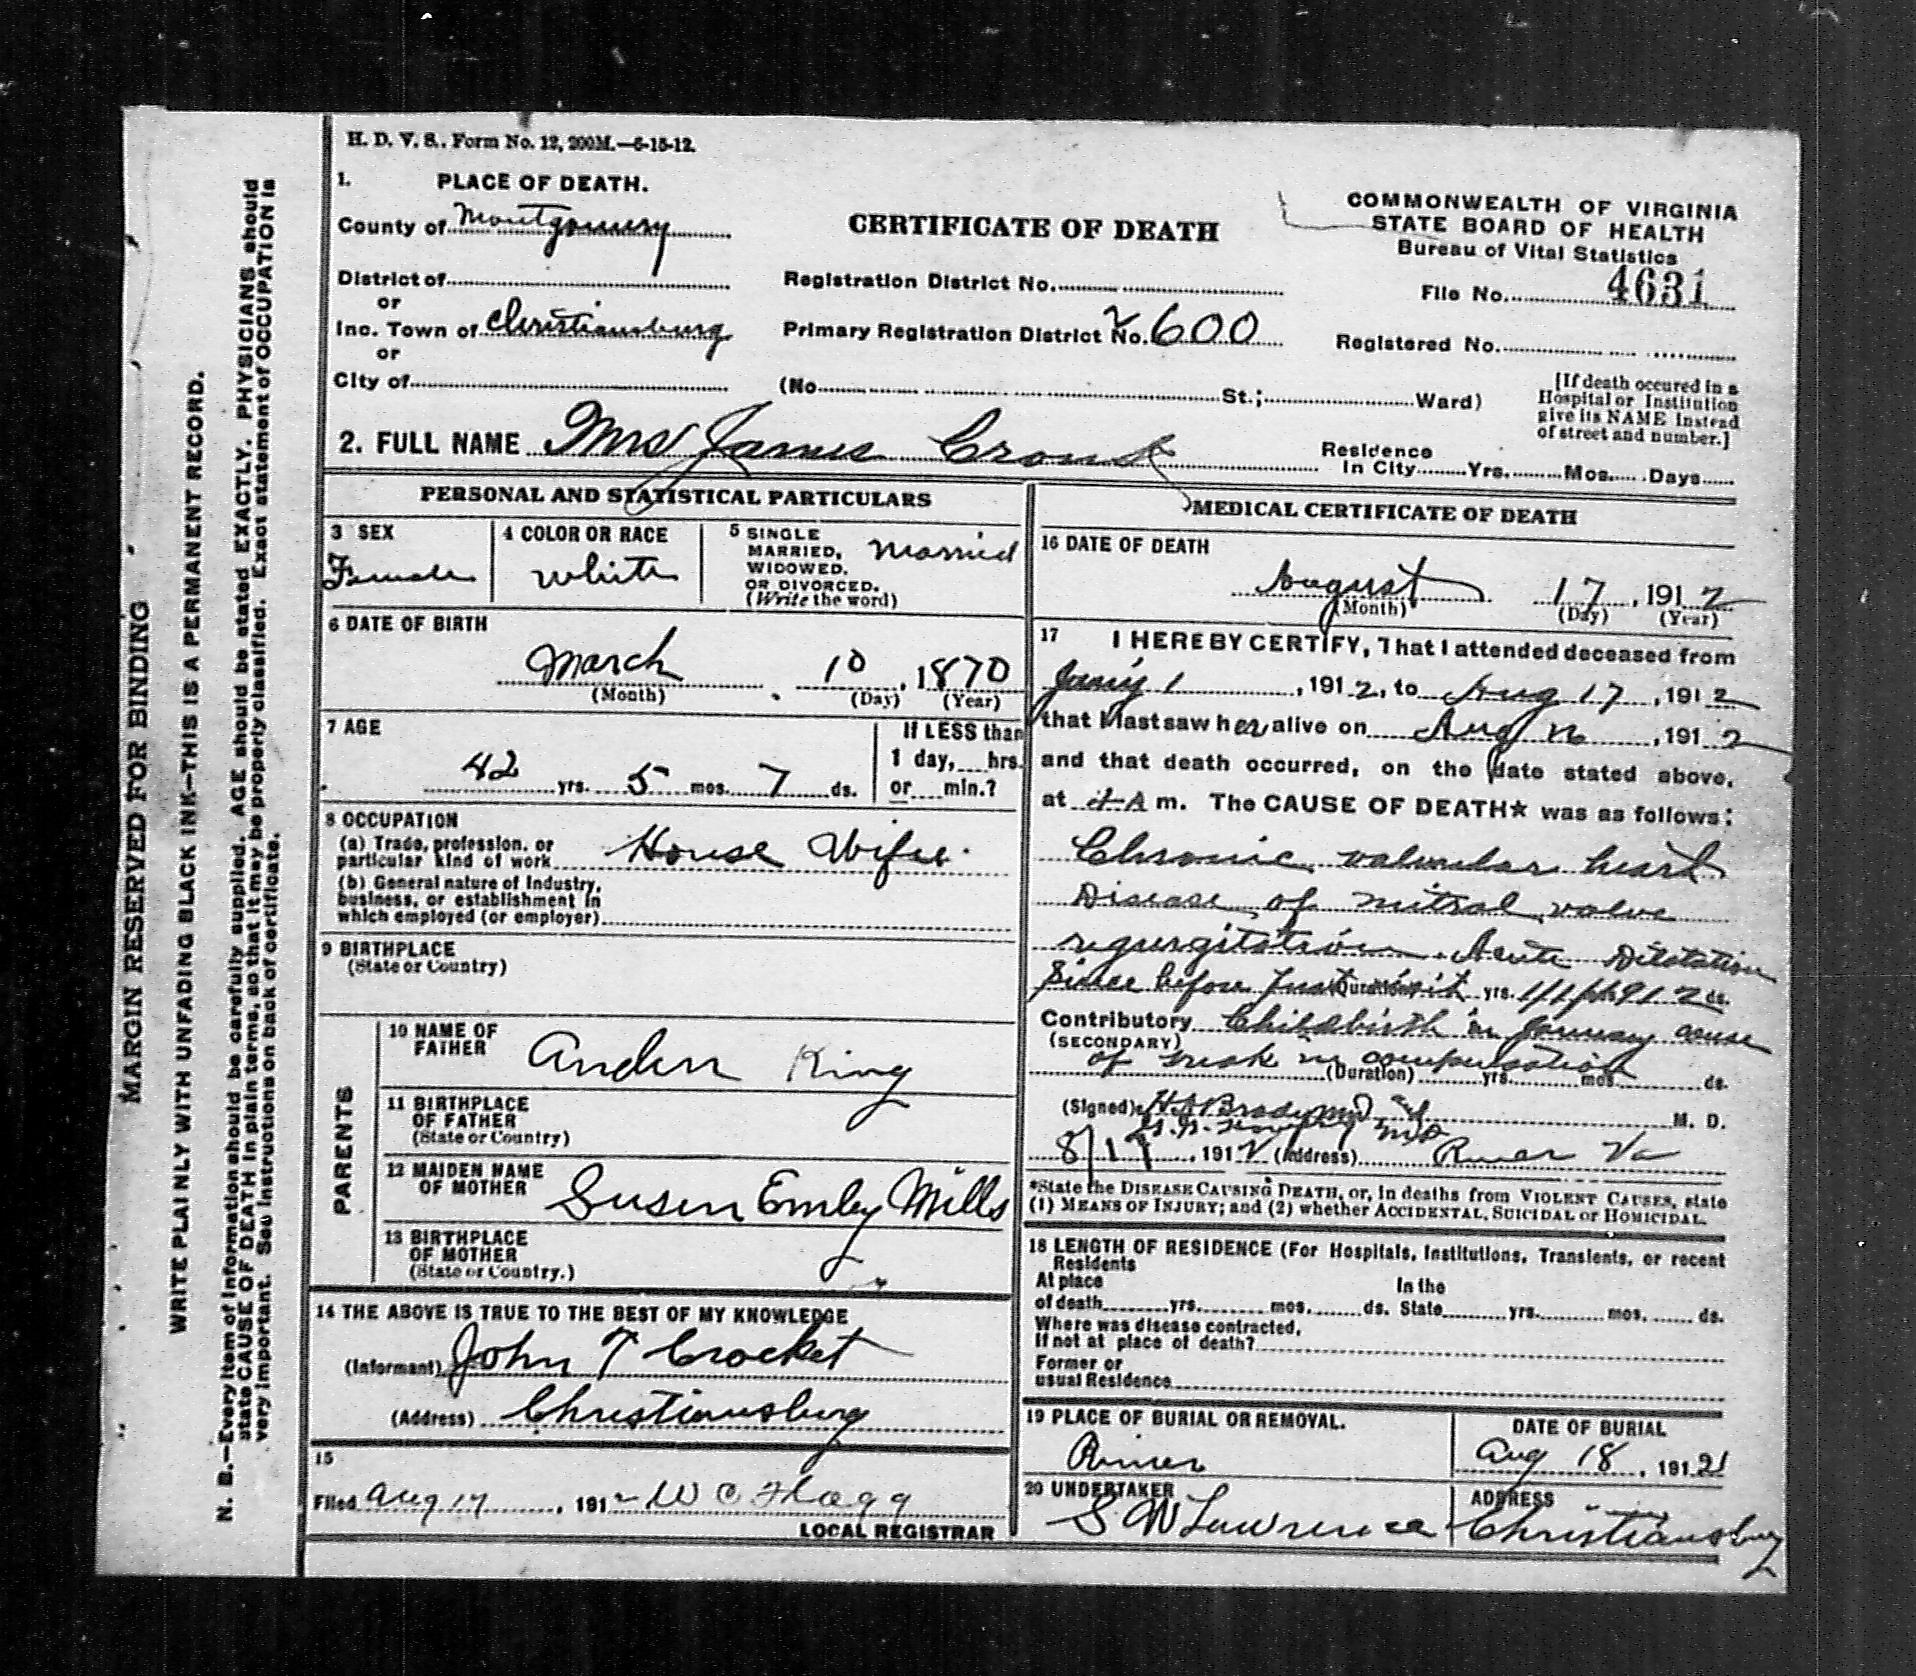 H. D. V. S., Form No. 12, 200M.—6-15-12.
1. PLACE OF DEATH.
County of Montgomery
District of
or
Inc. Town of Christiansburg
or
City of
CERTIFICATE OF DEATH
Registration District No.
Primary Registration District No. 2600
(No. St.; Ward)
COMMONWEALTH OF VIRGINIA
STATE BOARD OF HEALTH
Bureau of Vital Statistics
File No. 4631
Registered No.
[If death occured in a
Hospital or Institution
give its NAME instead
of street and number.]
2. FULL NAME Mrs James
Residence
In City Yrs. Mos. Days
PERSONAL AND STATISTICAL PARTICULARS
3 SEX
Female
4 COLOR OR RACE
White
5 SINGLE
MARRIED,
WIDOWED,
OR DIVORCED.
(Write the word)
Married
6 DATE OF BIRTH
March 10, 1870
(Month) (Day) (Year)
7 AGE
42 yrs. 5 mos. 7 ds.
If LESS than
1 day, hrs.
or min.?
8 OCCUPATION
(a) Trade, profession, or
particular kind of work House Wife
(b) General nature of Industry,
business, or establishment in
which employed (or employer)
9 BIRTHPLACE
(State or Country)
PARENTS
10 NAME OF
FATHER
King
11 BIRTHPLACE
OF FATHER
(State or Country)
12 MAIDEN NAME
OF MOTHER
Susen Emley Mills
13 BIRTHPLACE
OF MOTHER
(State or Country.)
14 THE ABOVE IS TRUE TO THE BEST OF MY KNOWLEDGE
(Informant) John T Crocket
(Address) Christiansburg
15
Filed Aug 17, 1912 W C Flagg
LOCAL REGISTRAR
MEDICAL CERTIFICATE OF DEATH
16 DATE OF DEATH
August 17, 1912
(Month) (Day) (Year)
17 I HEREBY CERTIFY, That I attended deceased from
1, 1912, to Aug 17, 1912
that I last saw her alive on Aug, 1912
and that death occurred, on the date stated above,
at A m. The CAUSE OF DEATH* was as follows:
Chronic valvular heart
Disease of mitral valve
regurgitation. Acute Dilatation
Since before first visit 1/1/1912
(Duration) yrs. ds.
Contributory Childbirth in January cause
(SECONDARY)
of break in compensation
(Duration) yrs. mos. ds.
(Signed) MD M. D.
8/17, 1912 (Address) Riner Va
*State the DISEASE CAUSING DEATH, or, in deaths from VIOLENT CAUSES, state
(1) MEANS OF INJURY; and (2) whether ACCIDENTAL, SUICIDAL or HOMICIDAL.
18 LENGTH OF RESIDENCE (For Hospitals, Institutions, Transients, or recent
Residents
At place In the
of death yrs. mos. ds. State yrs. mos. ds.
Where was disease contracted,
If not at place of death?
Former or
usual Residence
19 PLACE OF BURIAL OR REMOVAL.
Riner
DATE OF BURIAL
Aug 18, 1912
20 UNDERTAKER
S W Lawrence
ADDRESS
Christiansburg
MARGIN RESERVED FOR BINDING
WRITE PLAINLY WITH UNFADING BLACK INK—THIS IS A PERMANENT RECORD.
N. B.—Every item of information should be carefully supplied. AGE should be stated EXACTLY. PHYSICIANS should
state CAUSE OF DEATH in plain terms, so that it may be properly classified. Exact statement of OCCUPATION is
very important. See instructions on back of certificate.